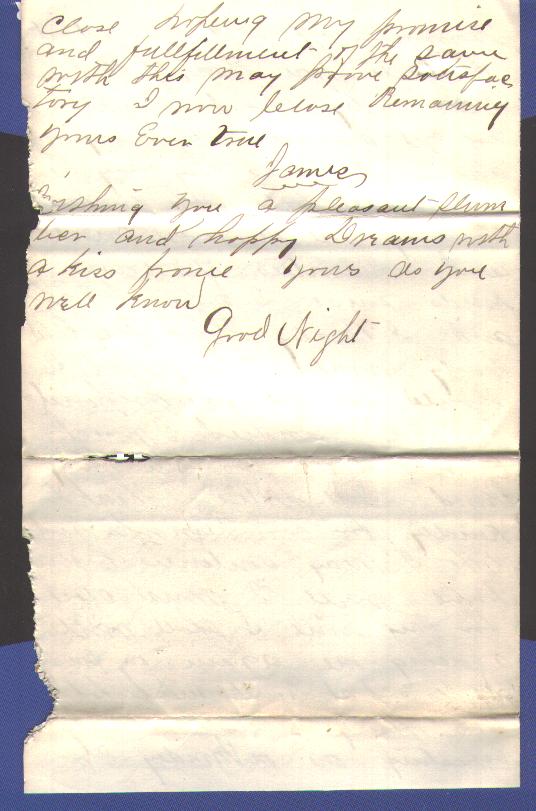 close hopeing my promise
and fullfillment of the same
with this may prove satisfac
tory I now close Remaining
yours Ever true
James
Wishing you a pleasant slum
ber and happy Dreams with
a kiss frome yours as you
well know
Good Night